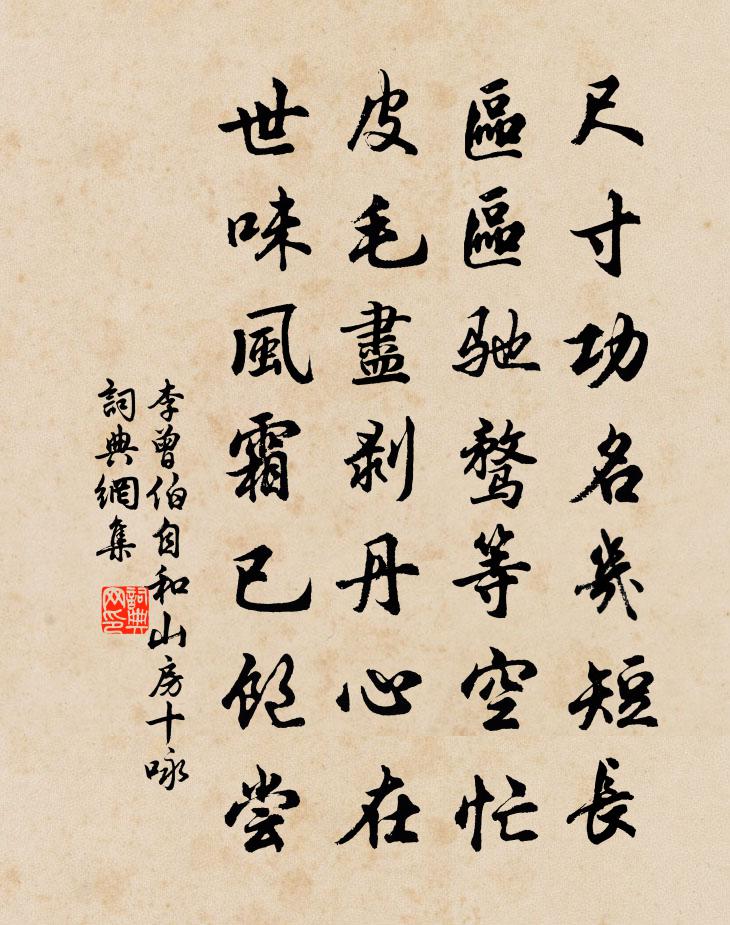 尺寸功名幾短長
區區馳騖等空忙
皮毛盡剥丹心在
世味風霜已飽嘗
李曾伯自和山房十咏
詞典網集
詞典網印